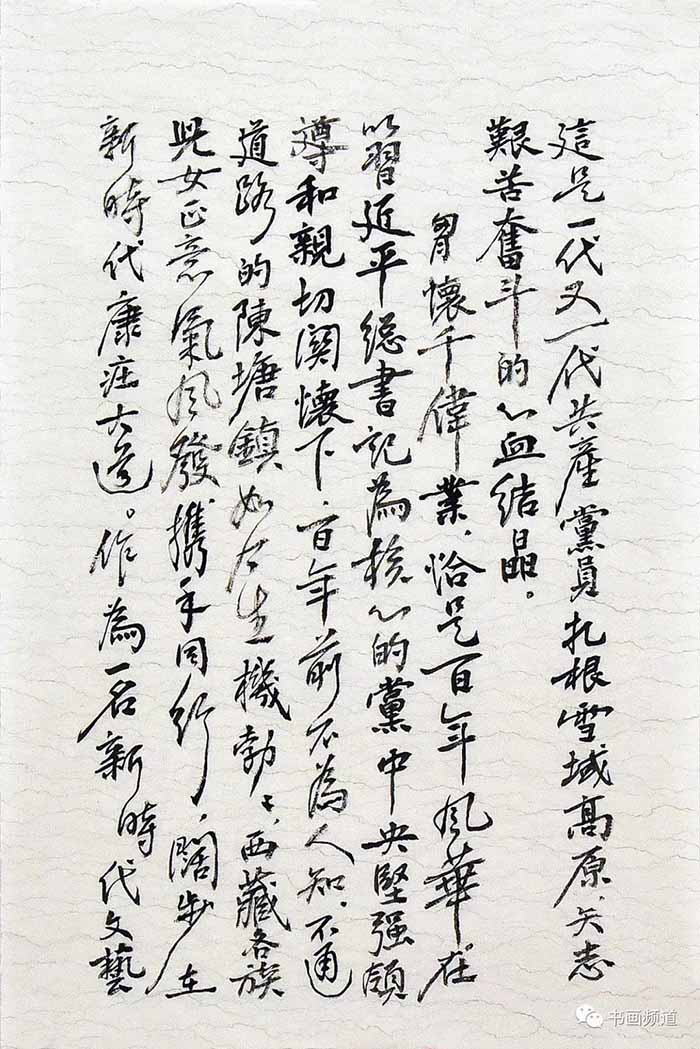 這是一代又一代共產黨員扎根雪域高原、矢志
艱苦奮斗的心血结晶。
胷懷千偉業、恰是百年風華在
以習近平總書記為核心的黨中央堅强領
導和親切関懷下、百年前不為人知、不通
道路的陳塘鎮如今生機勃〻、西藏各族
兒女正意氣风發、携手同行、闊步在
新時代康莊大道。作為一名新時代文藝
书画频道